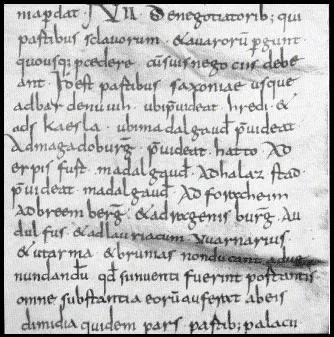 mandat VII. De negotiatorib; qui
partibus sclavorum . & avarorū p̄gunt .
quousq; p̄cedere cū suis negociis debe
ant . Id est partibus saxoniae usque
ad bardenuuih . ubi p̄uideat hredi . &
ads kaesla . ubi madalgaud p̄uideat .
Ad magadoburg . p̄uideat hatto Ad
erpisfurt . madalgaud . Ad halaz stad .
p̄uideat madalgaud . Ad foracheim
Ad breemberg . & ad reganisburg . Au
dulfus . & ad lauriacum Vuarnarius
& ut arma & brunias non ducant ad ue
nundandū qđ si inuenti fuerint portantis
omne substantia eorū auferat abeis
dimidia quidem pars partib; palacii